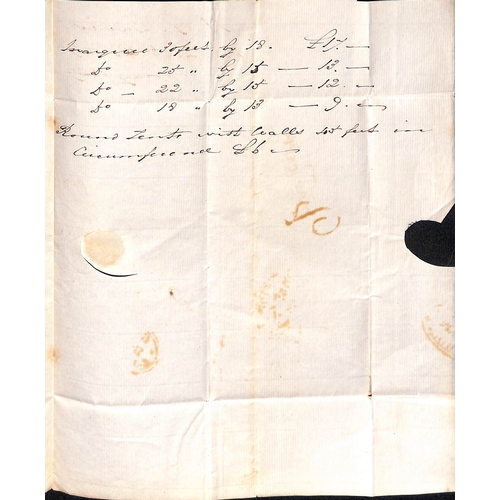 Marquee 30 feet by 18. £17. —
Do 25 " by 15 — 13. —
Do — 22 " by 15 — 12. —
Do 18 " by 13 — 9. —
Round Tents with Walls 45 feet in
Circumference £6 —